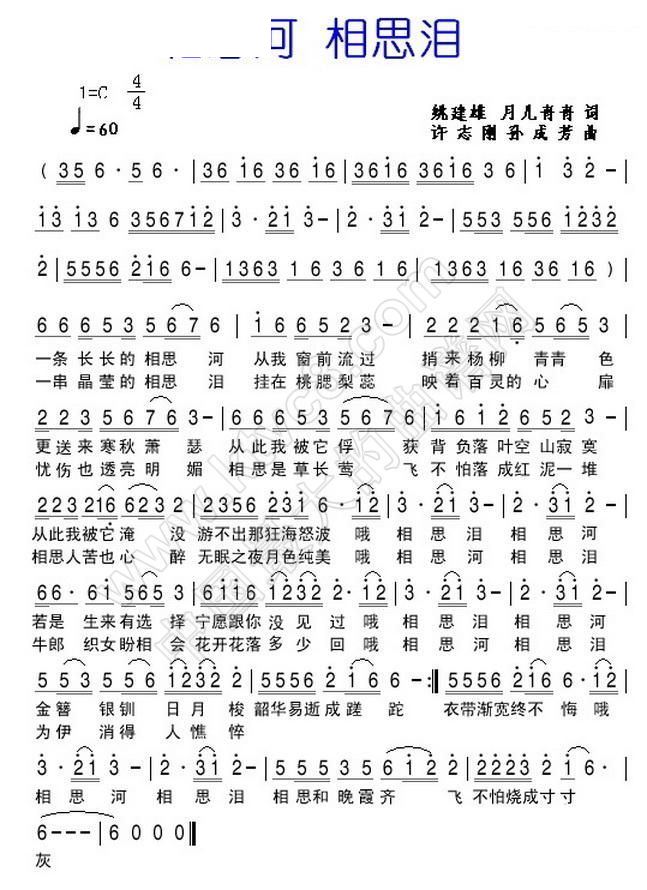 河 相思泪
1=C 4/4
♩=60
姚建雄 月儿青青 词
许志刚孙成芳 曲
( 35 6 · 5 6 · | 36 16 36 16 | 3616 3616 3 6 | 1 3 2 – |
13 13 6 356712 | 3 · 21 3 – | 2 · 31 2 – | 553 556 1232
2 | 5556 216 6 – | 1363 1 6 3 6 | 1363 16 36 16 ) |
6 6 6 5 3 5 6 7 6 | 1 6 6 5 2 3 – | 2 2 2 1 6 5 5 2 3 |
一条 长长的 相思 河 从我 窗前流过 捎来杨柳 青青 色
一串 晶莹的 相思 泪 挂在桃腮梨蕊 映着百灵的心 扉
2 2 3 5 6 7 6 3 – | 6 6 6 5 3 5 6 7 5 | 1 6 1 2 6 5 3
更送来寒秋萧 瑟 从此我被它 俘 获 背负落叶空山寂寞
忧伤也透亮明 媚 相思是草长莺 飞 不怕落成红泥一堆
2 2 3 216 6223 2 | 2 3 5 6 231 6 · | 3 · 21 3 · | 2 · 31 2
从此我被它淹 没 游不出那狂海怒波 哦 相思泪 相思河
相思人苦也心 醉 无眠之夜月色纯美 哦 相思河 相思泪
66 · 6 1 5 6 5 3 | 5 6 5 3 2 3 12 · | 3 · 21 3 · | 2 · 31 2
若是 生来有选 择 宁愿跟你 没见过 哦 相思泪 相思河
牛郎 织女盼相 会 花开花落多少回 哦 相思河 相思泪
5 5 3 5 5 6 1232 2 | 5556 216 6 – :‖ 5556 216 6 · |
金簪 银钏 日月梭 韶华易逝成蹉 跎 衣带渐宽终不 悔 哦
为伊 消得 人憔悴
3 · 21 3 – | 2 · 31 2 – | 5 5 5 3 5 6 12 2 | 2223 21 ·
相思河 相思泪 相思和 晚霞齐 飞 不怕烧成寸寸
6 – – – | 6 0 0 0 ‖
灰
www.ktvc8.com